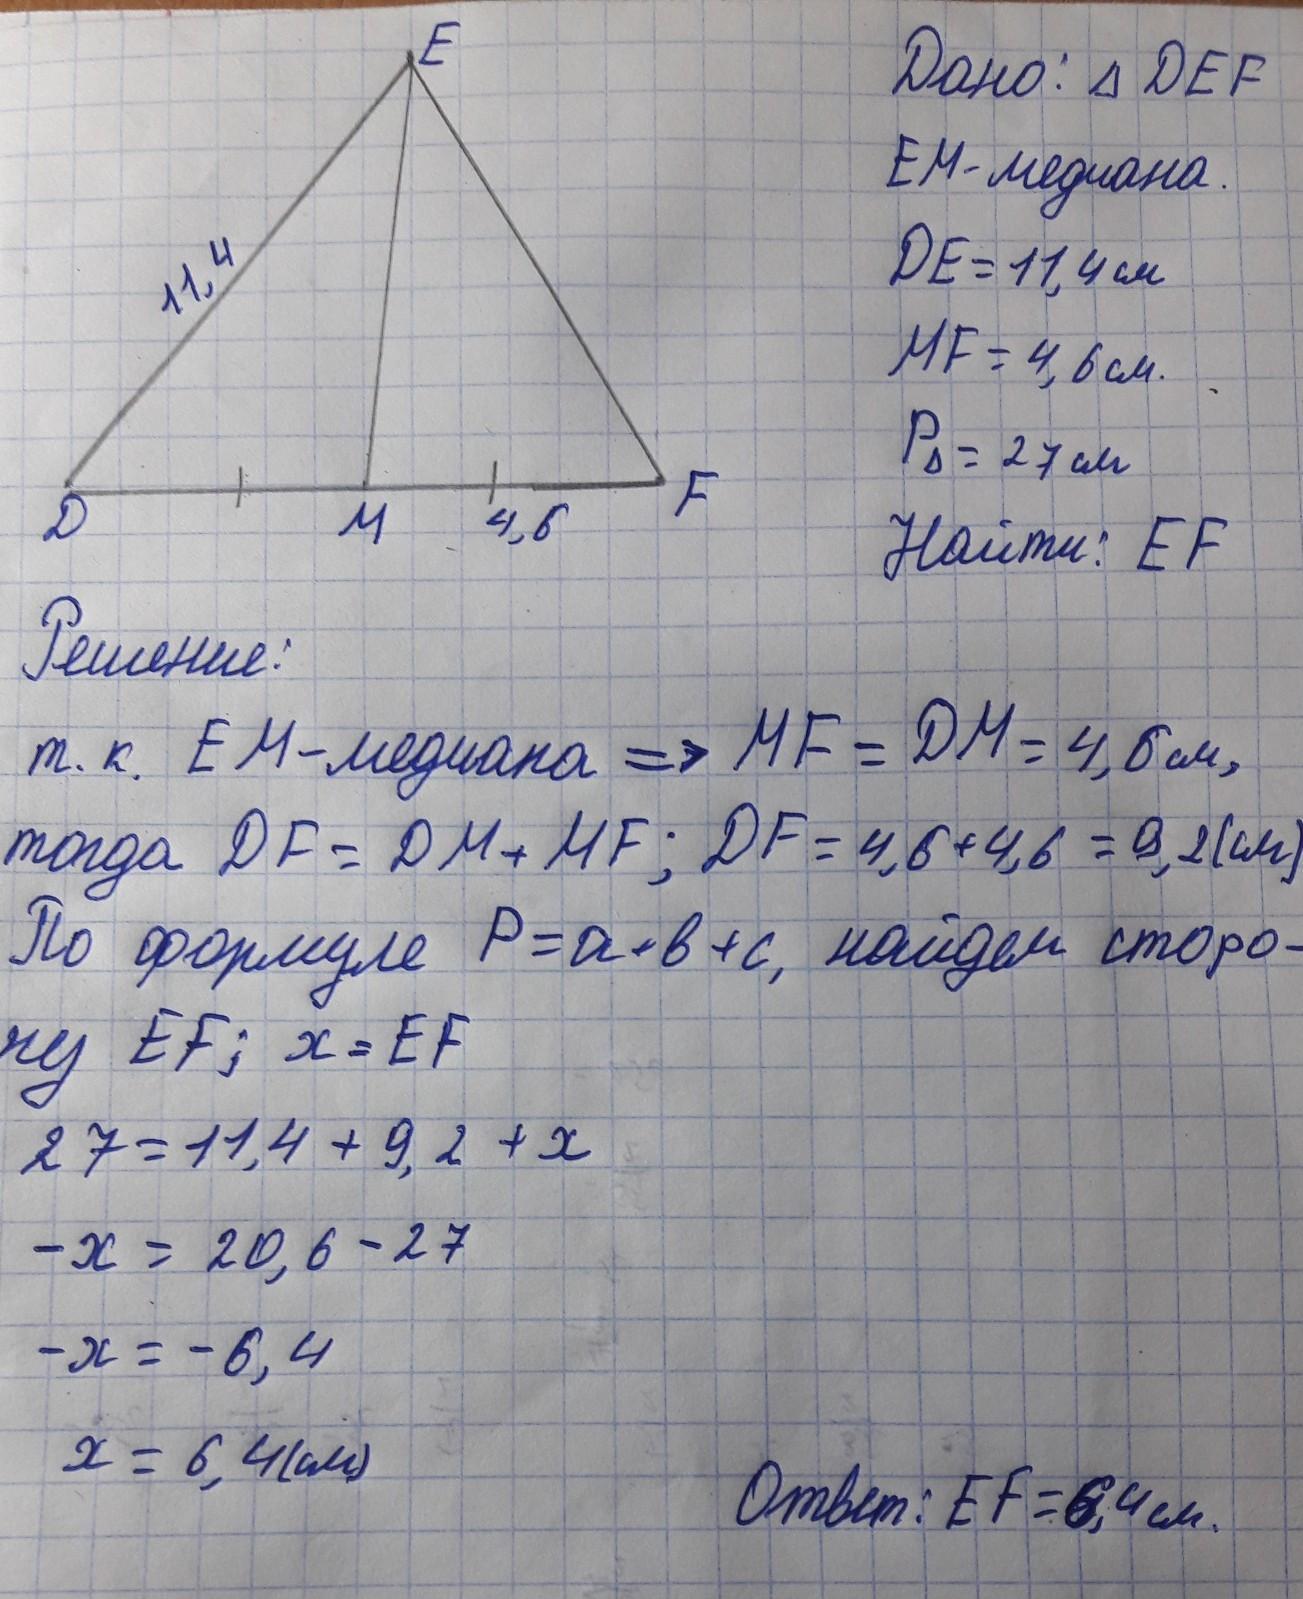 E
Дано: Δ DEF
EM-медиана.
DE = 11,4 см
11,4
MF = 4,6 см.
PΔ = 27 см
D
M
4,6
F
Найти: EF
Решение:
т. к. EM-медиана => MF = DM = 4,6 см,
тогда DF = DM + MF; DF = 4,6 + 4,6 = 9,2 (см)
По формуле P = a + в + c, найдем сторо-
ну EF; x = EF
27 = 11,4 + 9,2 + x
-x = 20,6 - 27
-x = -6,4
x = 6,4 (см)
Ответ: EF = 6,4 см.